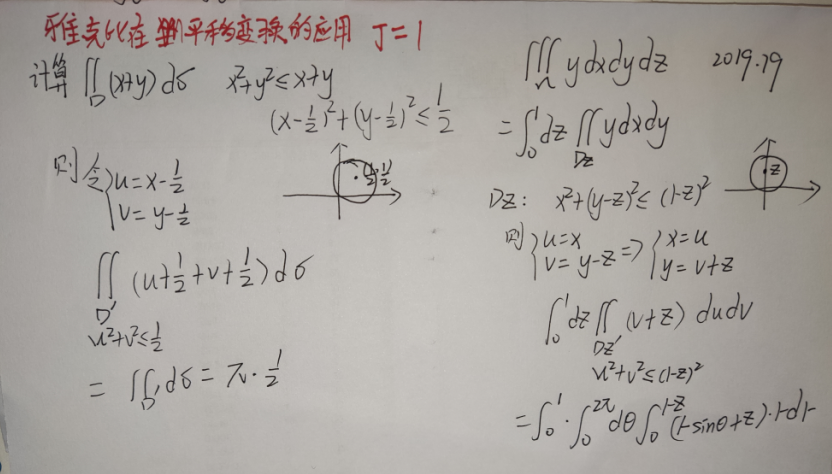 雅克比在平移变换的应用 J=1
计算 ∬_D (x+y)dσ x²+y²≤x+y
(x-1/2)²+(y-1/2)²≤1/2
则令{u=x-1/2
v=y-1/2
(1/2,1/2)
∬_D' (u+1/2+v+1/2)dσ
u²+v²≤1/2
=∬_D' dσ=π·1/2
∭_Ω ydxdydz 2019.19
=∫₀¹dz∬_Dz ydxdy
z
Dz: x²+(y-z)²≤(1-z)²
则{u=x
v=y-z ⇒ {x=u
y=v+z
∫₀¹dz∬_Dz' (v+z)dudv
u²+v²≤(1-z)²
=∫₀¹·∫₀^2π dθ∫₀^1-z (rsinθ+z)·rdr